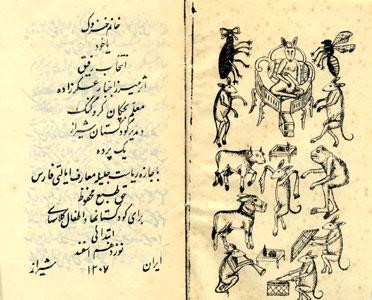 خانم خزوک
یا خود
انتخاب رفیق
اثر میرزا جبار عسکرزاده
معلم بچگان کر و گنگ
و مدیر کودکستان شیراز
یک پرده
با اجازه ریاست جلیله معارف ایالتی فارس
حق طبع محفوظ
برای کودکستانها و اطفال کلاسهای
ابتدائی
نوزدهم اسفند
ایران ۱۳۰۷ شیراز